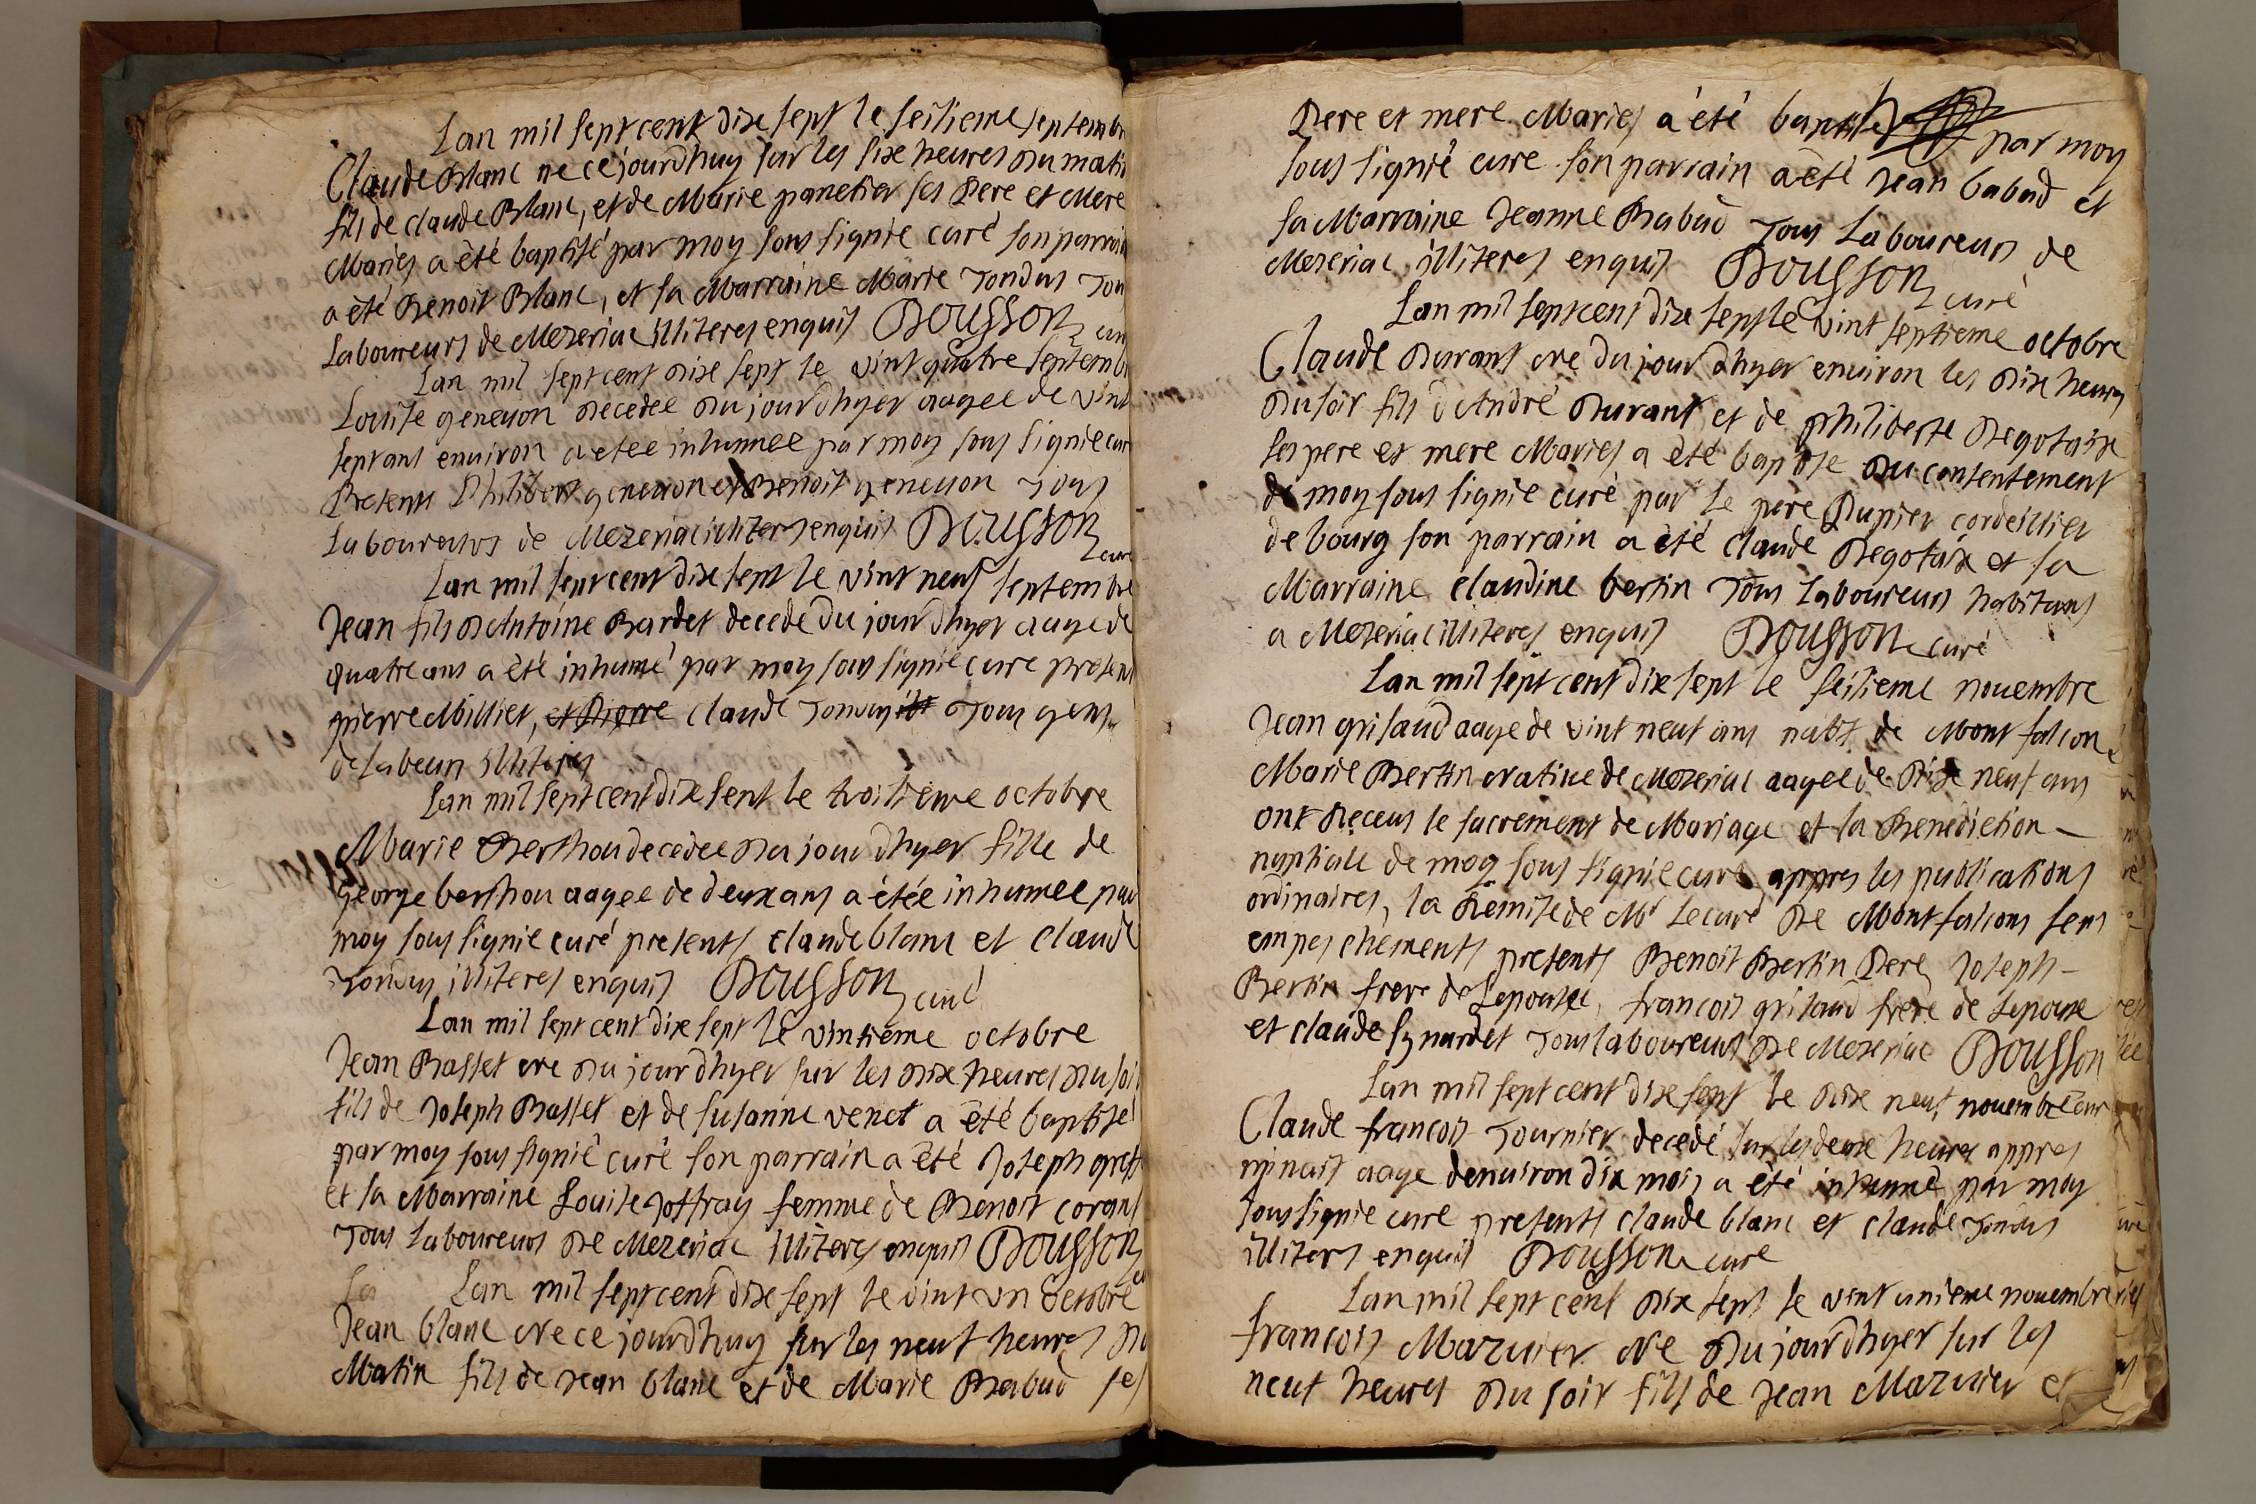 Lan mil sept cent dix sept le seitieme septembr
Claude Blanc ne ce jourdhuy sur les six heures du matin
fils de claude Blanc, et de Marie panetier ses Pere et Mere
Mariés a été baptisé par moy sous signié curé son parrain
a été Benoit Blanc, et sa Marraine Marie Tondus Tou
Laboureurs de Mezeriac illiteres enquis Dousson cu
Lan mil sept cent dix sept le vint quatre septemb
Louise geneuon decedee du jourdhyer aagee de vint
sept ans enuiron a etee inhumee par moy sous signie cur
Presents Philibert geneuon et Benoit geneuon Tous
Laboureurs de Mezeriac illiteres enquis Dousson cure
Lan mil sept cent dix sept le vint neuf septembre
Jean fils d'Antoine Bardet decede du jourdhyer aage de
quatre ans a été inhumé par moy sous signié cure presens
pierre Millier, et Pierre claude Tondus Tous gens
de labeur illiteres
Lan mil sept cent dix sept le troitieme octobre
Marie Berthou decedee du jourdhyer fille de
george berthou aagee de deux ans a étée inhumee par
moy sous signie curé presents claude blanc et claude
Tondus illiteres enquis Dousson curé
Lan mil sept cent dix sept le vintieme octobre
Jean Basset ne du jourdhyer sur les dix heures du soir
fils de Joseph Basset et de susanne venet a été baptisé
par moy sous signié curé son parrain a été Joseph
et sa Marraine Louise Joffray femme de Benoit corant
Tous Laboureurs de Mezeriac illiteres enquis Dousson
Lan mil sept cent dix sept le vint un octobre
Jean blanc Ne ce jourdhuy sur les neuf heures du
Matin fils de Jean blanc et de Marie Babud ses
Pere et mere Mariés a été baptisé par moy
sous signié cure son parrain a été Jean babud et
sa Marraine Jeanne Babud Tous Laboureurs de
Mezeriac illiteres enquis Dousson curé
Lan mil sept cent dix sept le vint septieme octobre
Claude Durant Ne du jourdhyer enuiron les dix heures
du soir fils d'André Durant et de philiberte Degotaix
ses pere et mere Mariés a été baptise du contentement
de moy sous signie curé par le pere Dupier cordeillier
de bourg son parrain a été claude Degotaix et sa
Marraine claudine bertin Tous Laboureurs habitans
a Mezeriac illiteres enquis Dousson curé
Lan mil sept cent dix sept le seitieme nouembre
Jean grisaud aage de vint neuf ans natif de Montfalcon
Marie Bertin Natiue de Mezeriac aagee de dix neuf ans
ont Receus le sacrement de Mariage et la Benediction
nuptiale de moy sous signie curé appres les publications
ordinaires, la Remise de Mr Lecuré de Montfalcons sens
empeschements presents Benoit Bertin Pere, Joseph
Bertin frere de Lepousee, francois grisaud frere de Lepoux
et claude synardet Tous laboureurs de Mezeriac Dousson
Lan mil sept cent dix sept le dix neuf nouembre cur
Claude francois Tournier decedé sur les deux heures appres
minuit aage denuiron dix mois a été inhumé par moy
sous signie cure presents claude blanc et claude Tondus
illiteres enquis Dousson cure
Lan mil sept cent dix sept le vint unieme nouembre
francois Mazuier Ne du jourdhyer sur les
neuf heures du soir fils de Jean Mazuier et